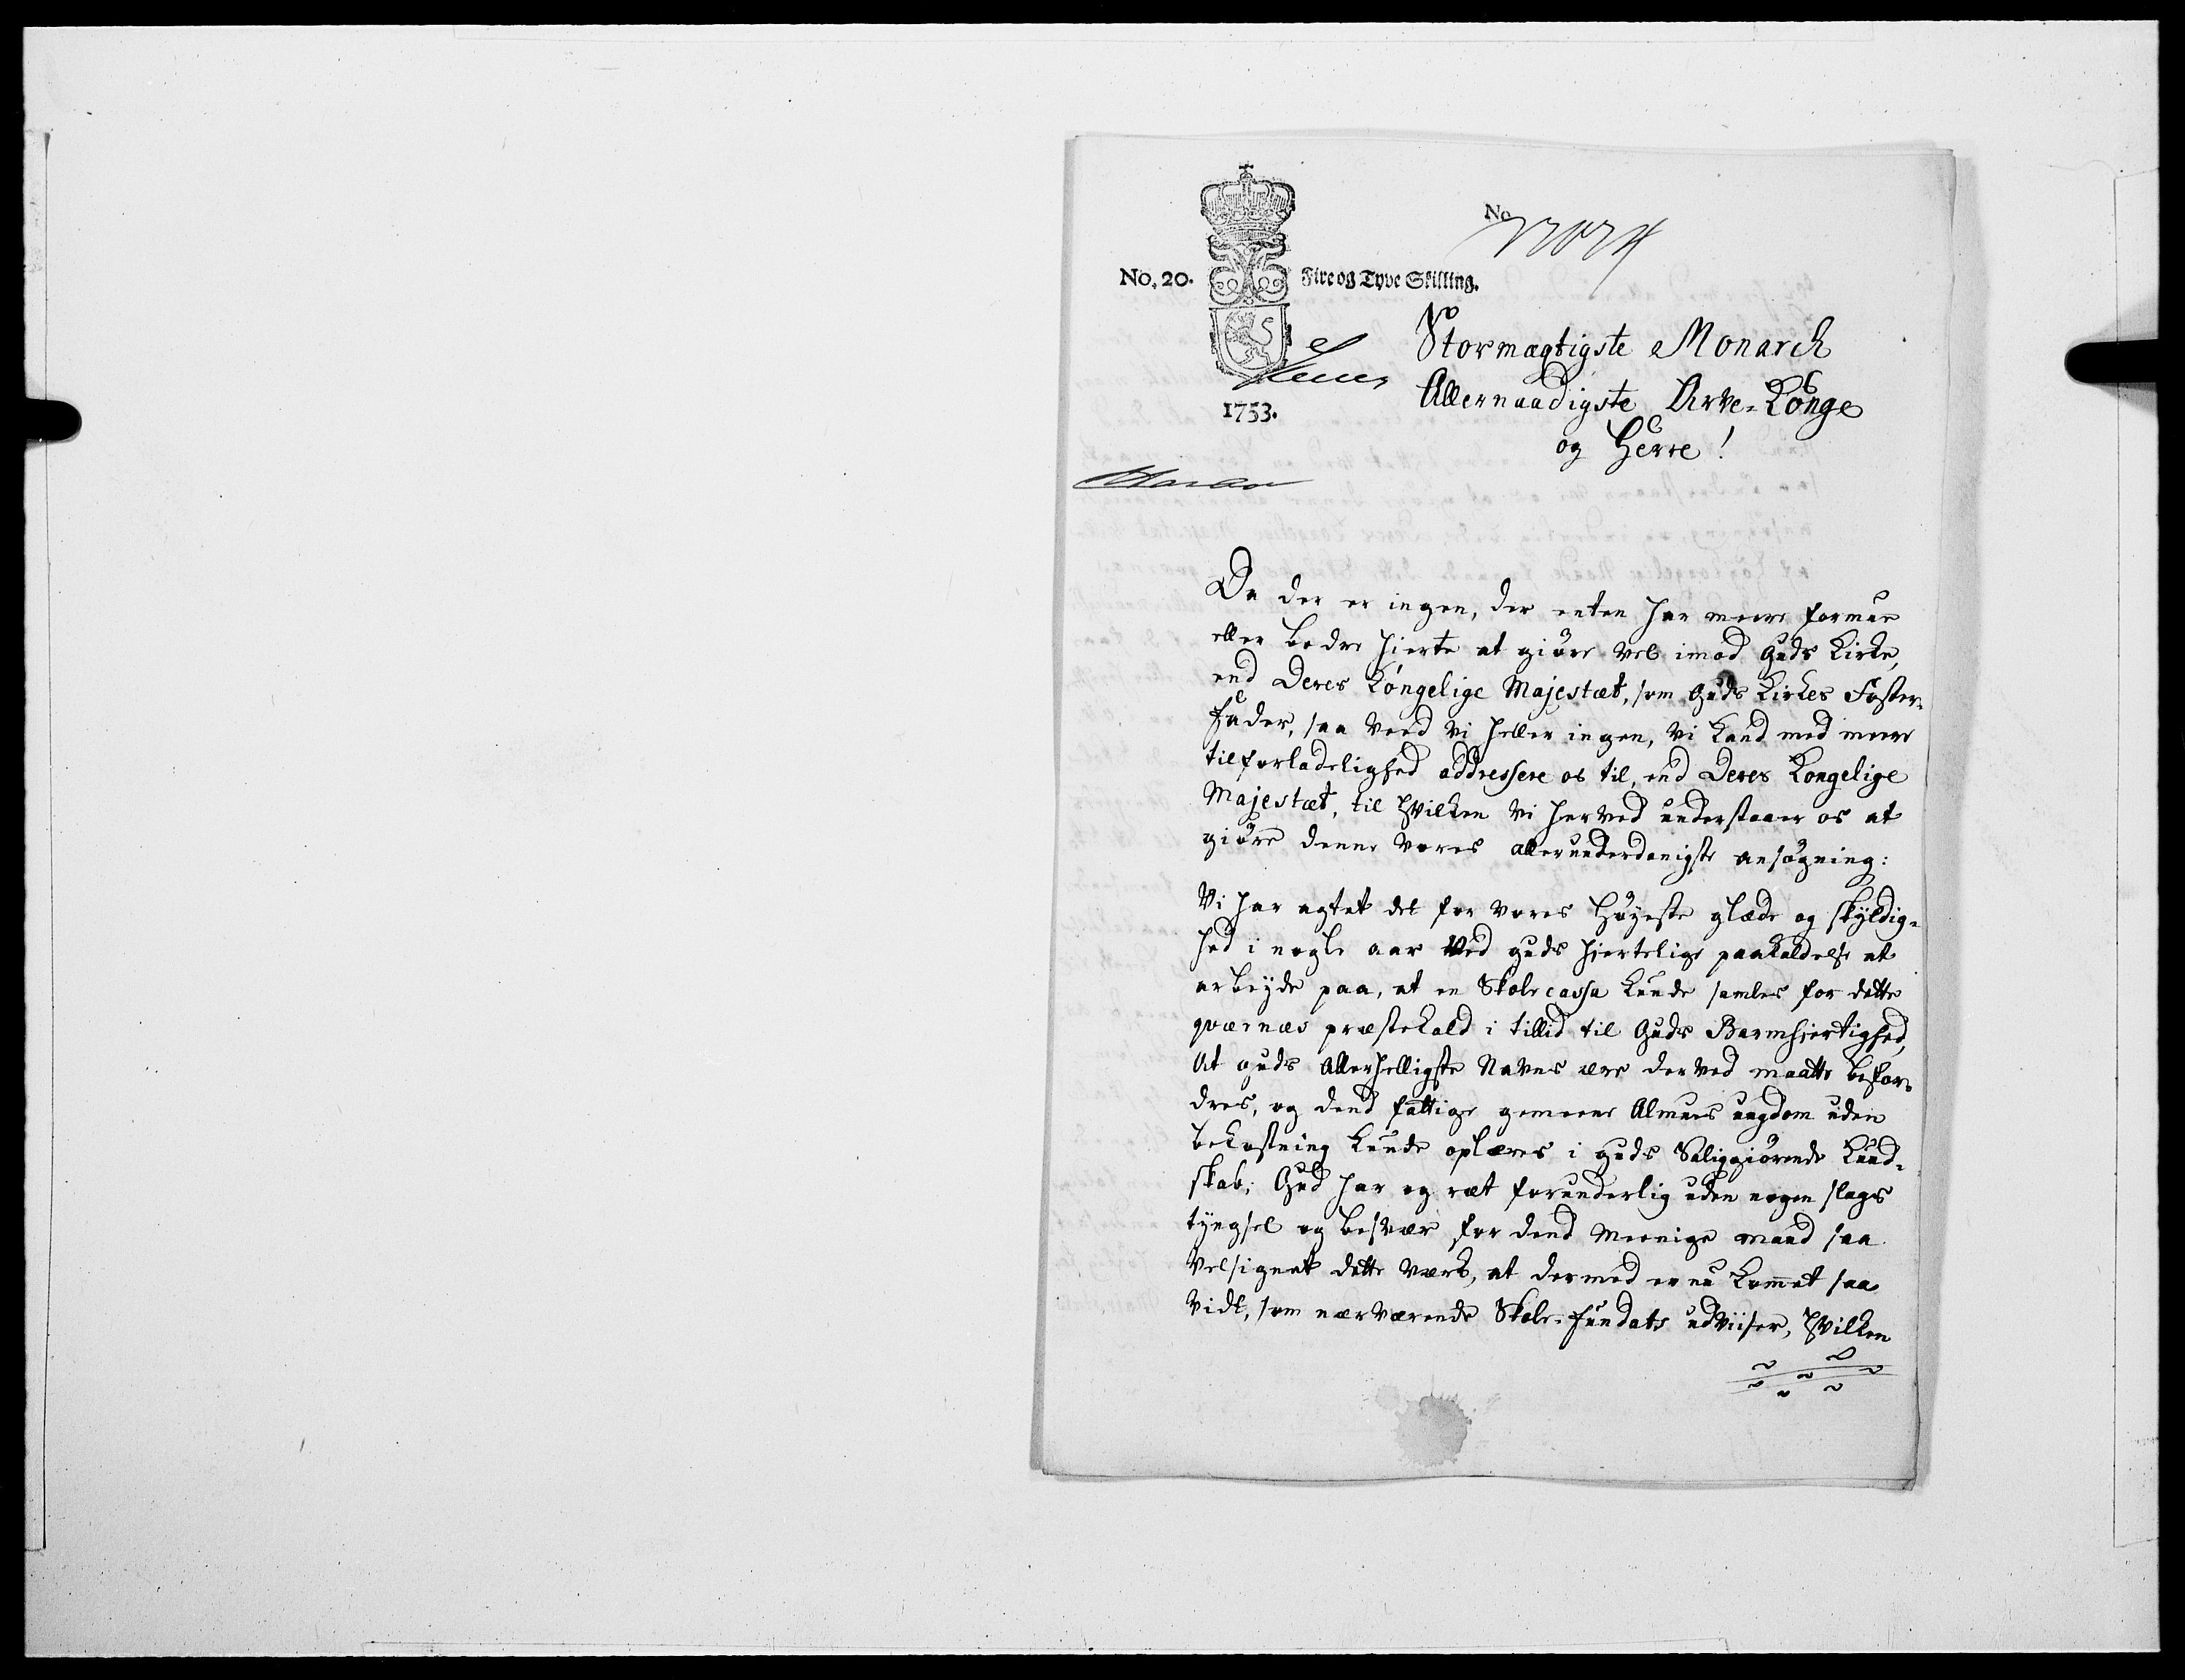 No.
No. 20.
Fire og Tyve Skilling.
1753.
Stormægtigste Monarch
Allernaadigste Arve-Konge
og Herre!
Da der er ingen, der enten har meere formue
eller bedre hierte at giöre vel imod Guds Kirke,
end Deres Kongelige Majestæt, som Guds Kirkes Foster-
fader, saa veed vi heller ingen, vi kand med meere
tilforladelighed addressere os til, end Deres Kongelige
Majestæt, til hvilken vi herved understaaer os at
giöre denne vores allerunderdanigste ansögning:
Vi har agtet det for vores höyeste glæde og skyldig-
hed i nogle aar ved guds hiertelige paakaldelse at
arbeyde paa, at en Skolecassa kunde samles for dette
qværnæs præstekald i tillid til Guds Barmhiertighed,
At guds Allerhelligste Navns ære derved maatte befor-
dres, og dend fattige gemeene Almues ungdom uden
bekostning kunde oplæres i guds Saliggiörende kund-
skab; Gud har og ræt forunderlig uden nogen slags
tyngsel og besvær for dend meenige mand saa
velsignet dette værk, at dermed er nu kommet saa
vidt, som nærværende Skole-fundats udviiser, hvilken